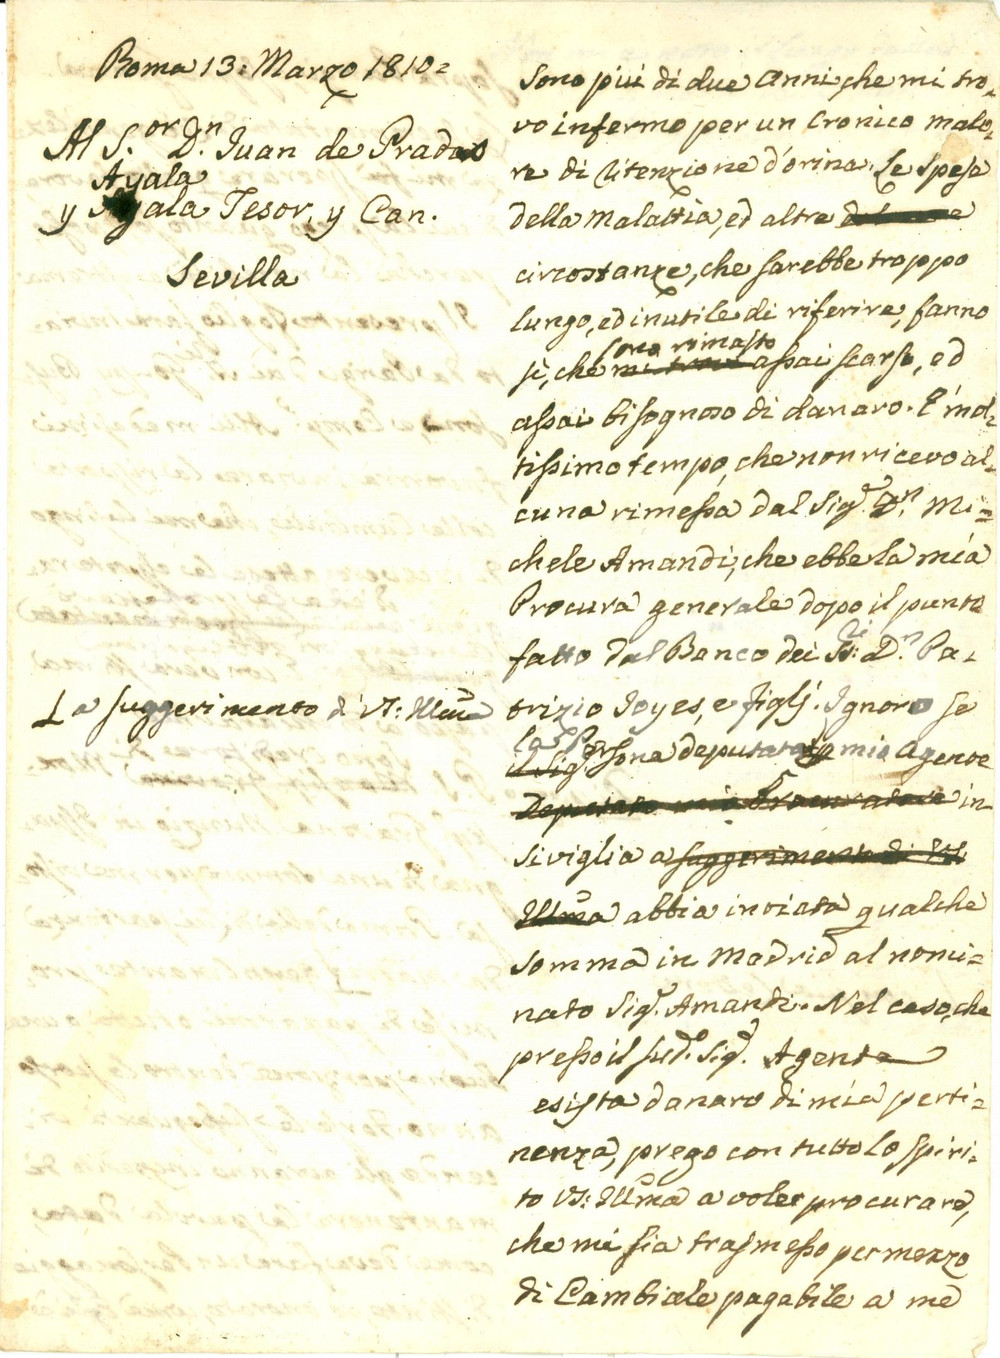 Roma 13: Marzo 1810=
Al S.or D.n Juan de Pradas
Ayala
y Ayala Tesor. y Can.
Sevilla
La suggerimento di VS: Illma
Sono più di due anni, che mi tro-
vo infermo per un cronico malo-
re di Ritenzione d'orina. Le spese
della malattia, ed altre
circostanze, che sarebbe troppo
lungo, ed inutile di riferire, fanno
sono rimasto
sì, che mi trovo assai scarso, ed
assai bisognoso di danaro. È mol-
tissimo tempo, che non ricevo al-
cuna rimessa dal Sig.r D.n Mi=
chele Amandi, che ebbe la mia
Procura generale dopo il punto
fatto dal Banco dei SS:ri D.n Pa-
trizio Joyes, e figlj. Ignoro se
la Persona deputata mio Agente
il Sig.r
Deputato mio Procuratore in
Siviglia a suggerimento di VS:
Illma abbia inviata qualche
somma in Madrid al nomi=
nato Sig.r Amandi. Nel caso, che
presso il sud.o Sig.r Agente
esista danaro di mia perti=
nenza, prego con tutto lo spiri-
to VS: Illma a voler procurare,
che mi sia trasmesso per mezzo
di Cambiale pagabile a me